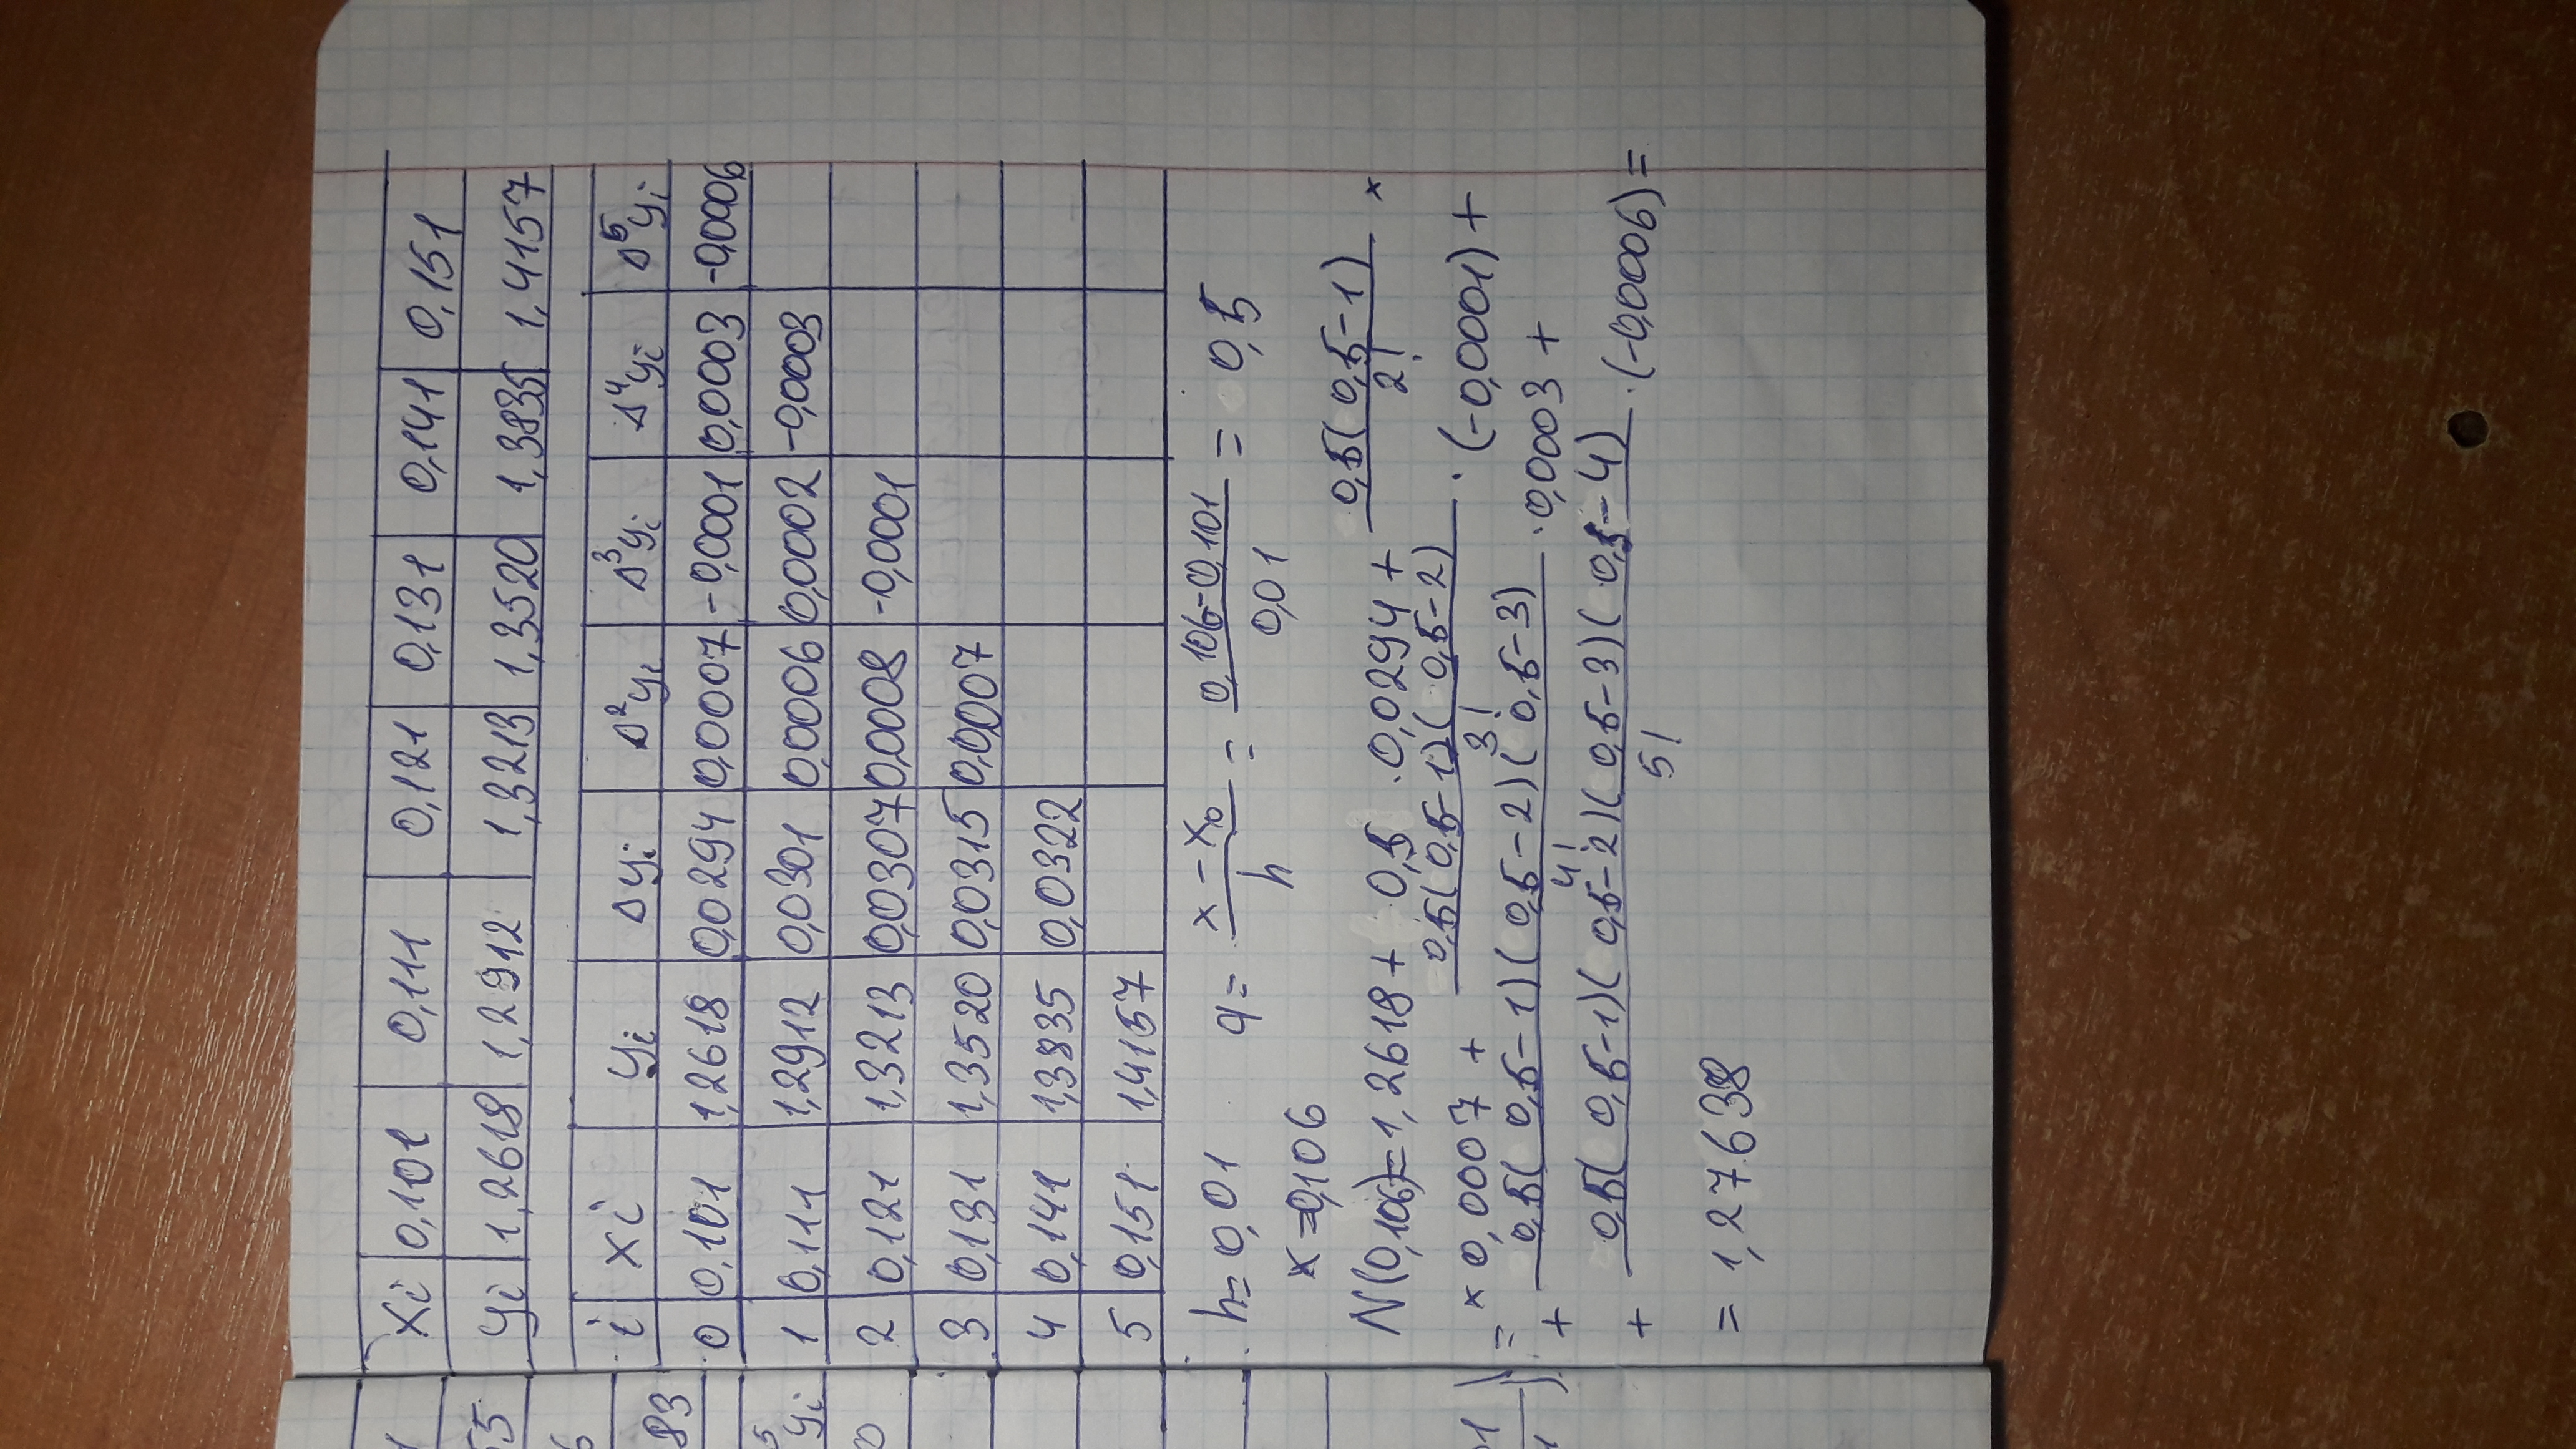 xi 0,101 0,111 0,121 0,131 0,141 0,151
yi 1,2618 1,2912 1,3213 1,3520 1,3835 1,4157
i xi yi Δyi Δ²yi Δ³yi Δ⁴yi Δ⁵yi
0 0,101 1,2618 0,0294 0,0007 -0,0001 0,0003 -0,0006
1 0,111 1,2912 0,0301 0,0006 0,0002 -0,0003
2 0,121 1,3213 0,0307 0,0008 -0,0001
3 0,131 1,3520 0,0315 0,0007
4 0,141 1,3835 0,0322
5 0,151 1,4157
h=0,01 q = (x - x₀)/h = (0,106-0,101)/0,01 = 0,5
x=0,106
N(0,106)=1,2618+ 0,5 ·0,0294+ 0,5(0,5-1)/2! ×
×0,0007 + 0,5(0,5-1)(0,5-2)/3! · (-0,0001)+
+ 0,5(0,5-1)(0,5-2)(0,5-3)/4! ·0,0003+
+ 0,5(0,5-1)(0,5-2)(0,5-3)(0,5-4)/5! ·(-0,0006)=
= 1,27638
83
yi